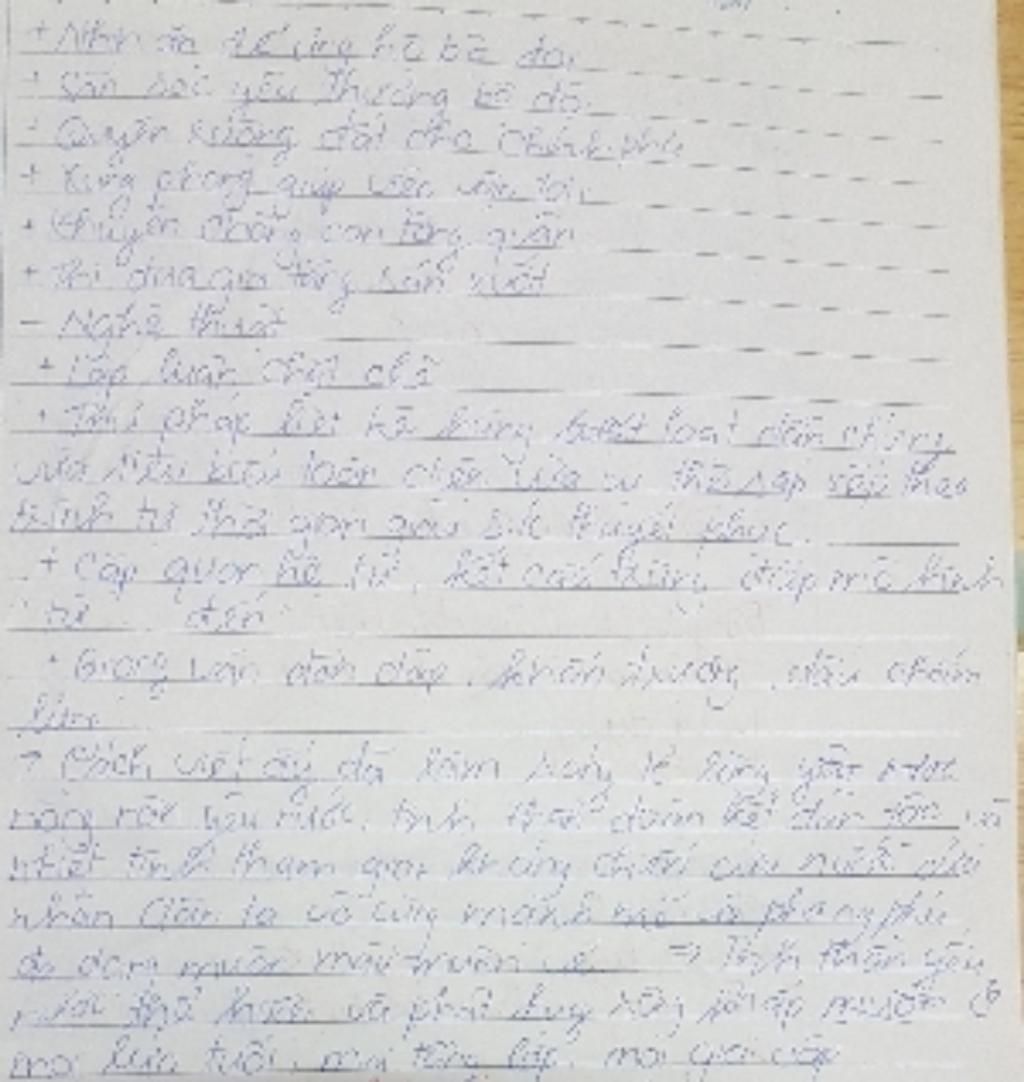 + Nhịn ăn để ủng hộ bộ đội
+ Săn sóc yêu thương bộ đội
+ Quyên ruộng đất cho Chính phủ
+ Xung phong giúp việc vận tải
+ Khuyên chồng con tòng quân
+ Thi đua gia tăng sản xuất
- Nghệ thuật
+ Lập luận chặt chẽ
+ Thủ pháp liệt kê hàng loạt dẫn chứng
vừa tiêu biểu toàn diện vừa cụ thể sắp xếp theo
trình tự thời gian giàu sức thuyết phục
+ Cặp quan hệ từ, kết cấu trùng điệp mô hình
từ đến
+ Giọng văn dồn dập, khẩn trương, dấu chấm
lửng
→ Cách viết ấy đã làm sáng tỏ lòng yêu nước
nồng nàn yêu nước, tinh thần đoàn kết dân tộc và
nhiệt tình tham gia kháng chiến cứu nước của
nhân dân ta vô cùng mạnh mẽ và phong phú
đa dạng muôn màu muôn vẻ ⇒ Tinh thần yêu
nước thể hiện và phát huy rộng khắp ở
mọi lứa tuổi, mọi tầng lớp, mọi giai cấp